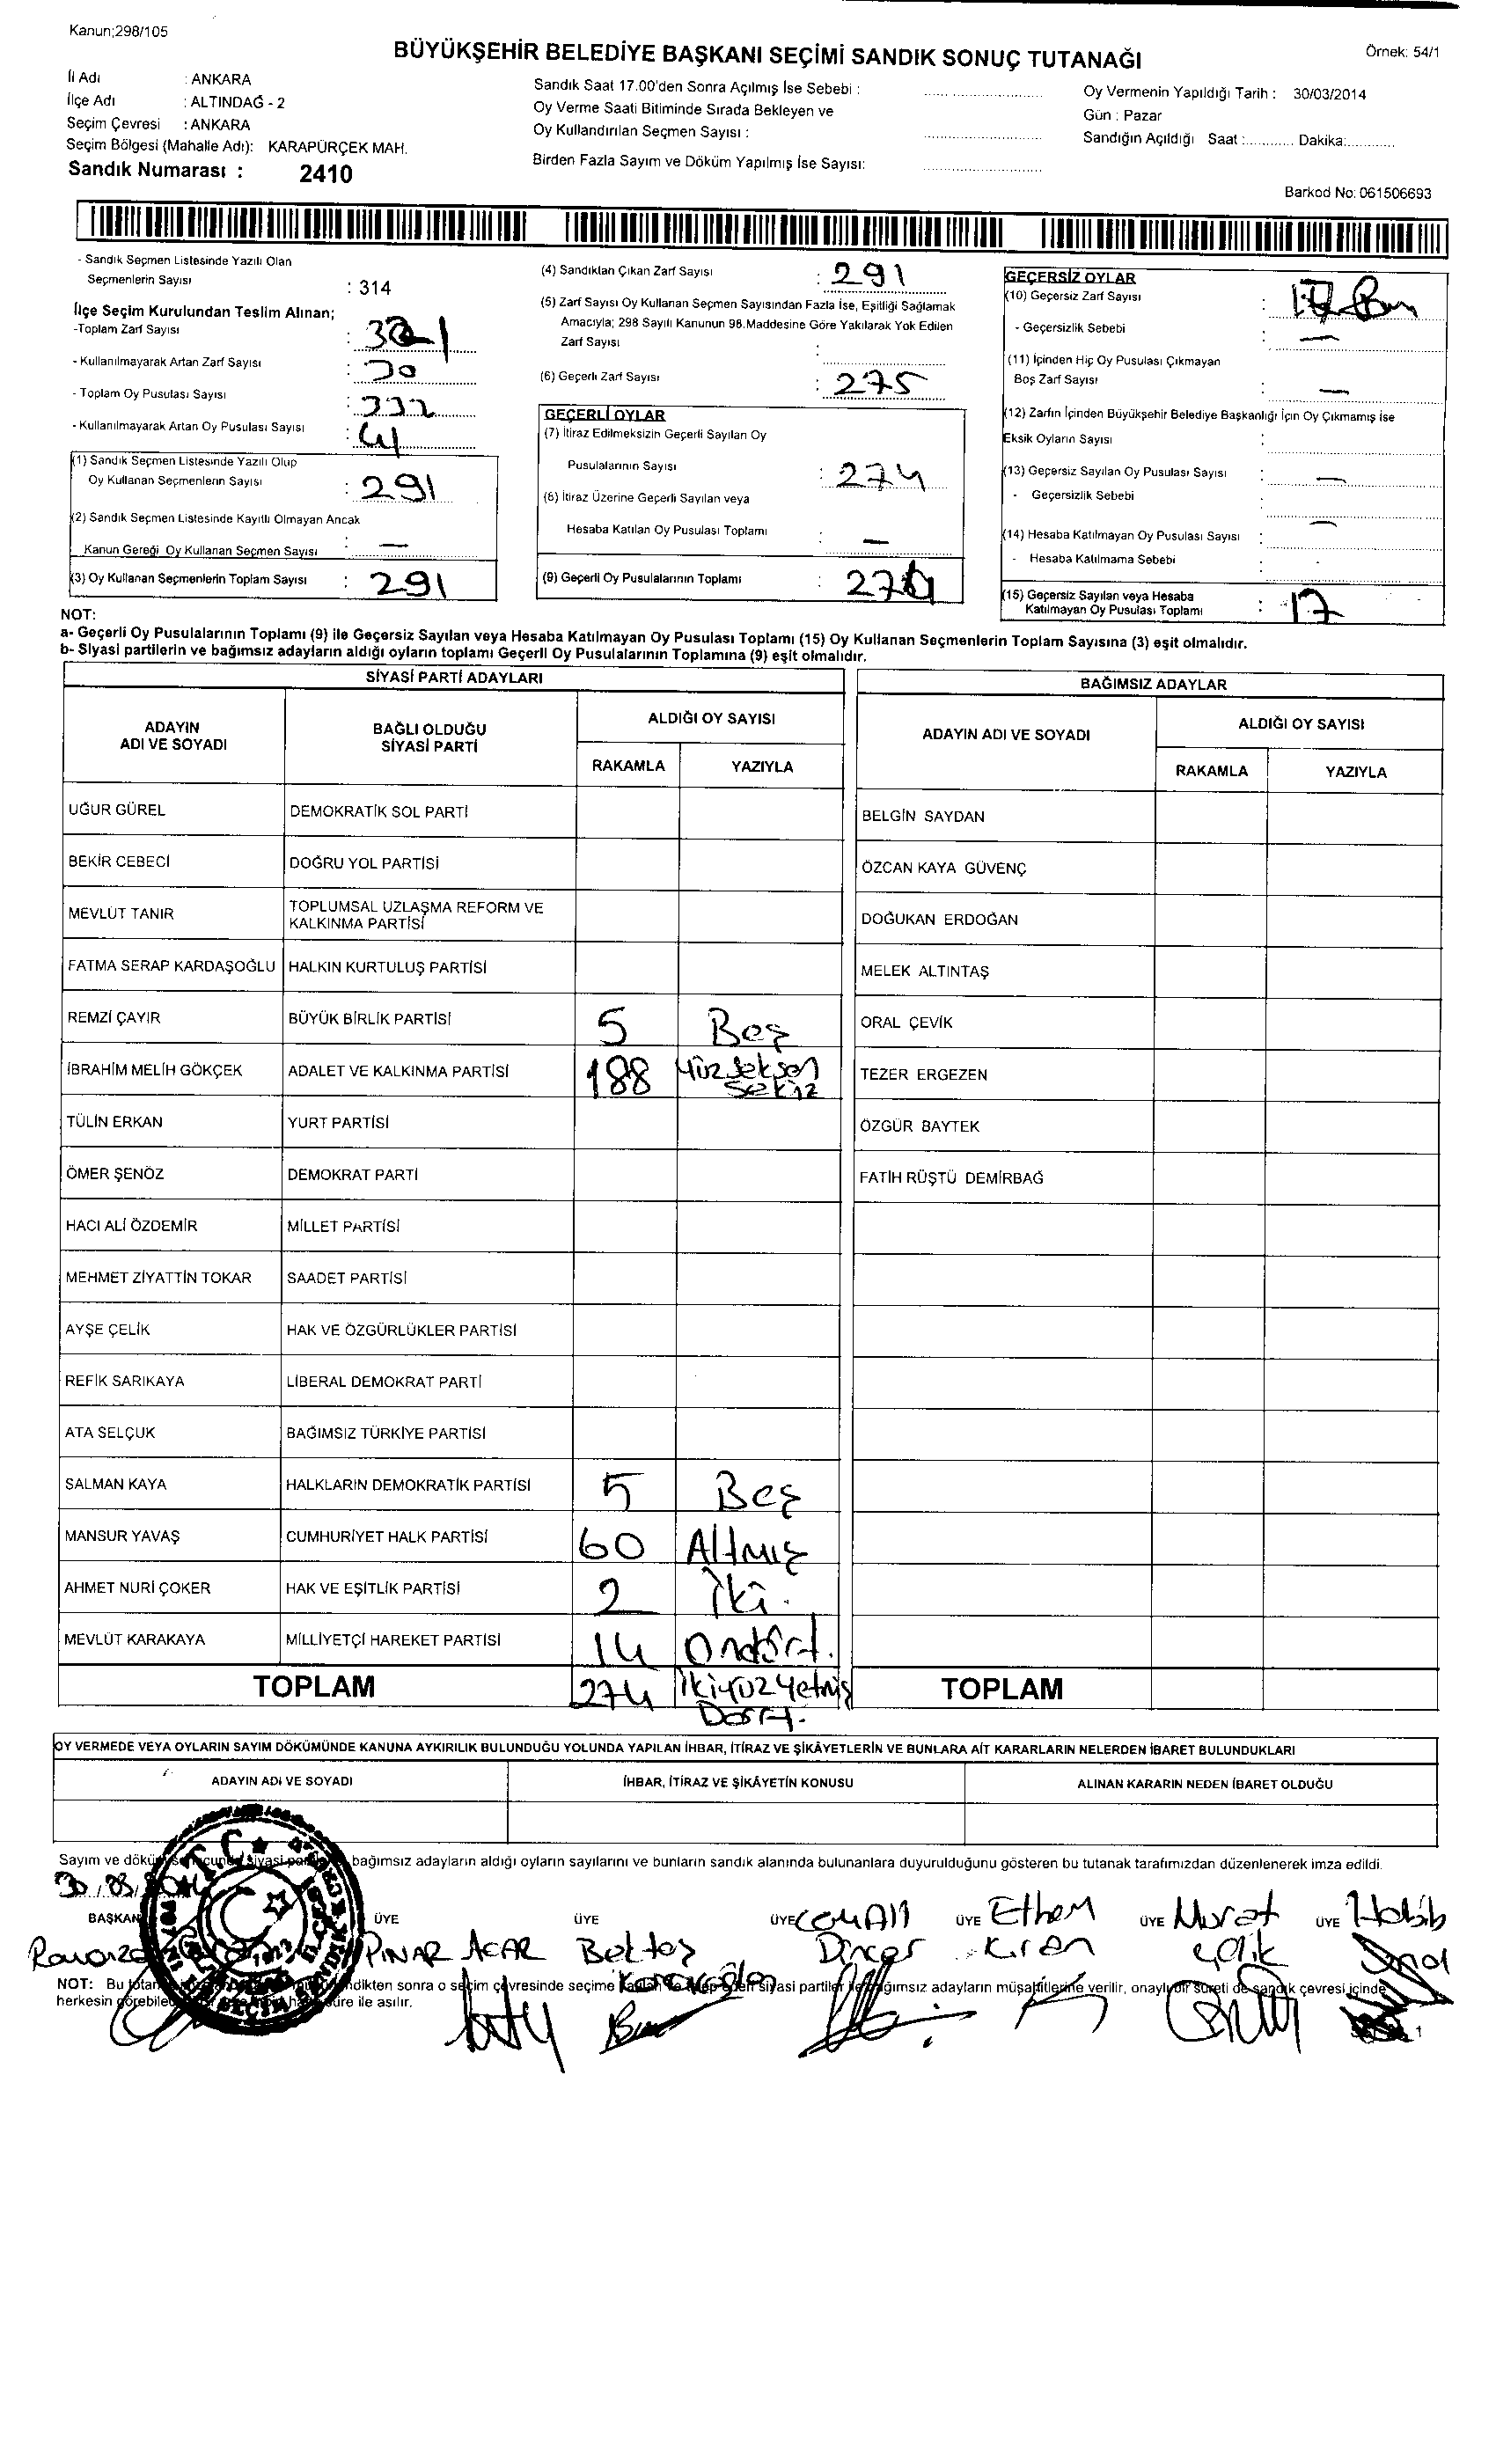 Kanun;298/105
BÜYÜKŞEHİR BELEDİYE BAŞKANI SEÇİMİ SANDIK SONUÇ TUTANAĞI
Örnek: 54/1
İl Adı : ANKARA
İlçe Adı : ALTINDAĞ - 2
Seçim Çevresi : ANKARA
Seçim Bölgesi (Mahalle Adı): KARAPÜRÇEK MAH.
Sandık Numarası : 2410
Sandık Saat 17.00'den Sonra Açılmış İse Sebebi :
Oy Verme Saati Bitiminde Sırada Bekleyen ve
Oy Kullandırılan Seçmen Sayısı :
Birden Fazla Sayım ve Döküm Yapılmış İse Sayısı:
Oy Vermenin Yapıldığı Tarih : 30/03/2014
Gün : Pazar
Sandığın Açıldığı Saat :............ Dakika:............
Barkod No: 061506693
- Sandık Seçmen Listesinde Yazılı Olan
Seçmenlerin Sayısı : 314
İlçe Seçim Kurulundan Teslim Alınan;
-Toplam Zarf Sayısı :
- Kullanılmayarak Artan Zarf Sayısı : 30
- Toplam Oy Pusulası Sayısı : 332
- Kullanılmayarak Artan Oy Pusulası Sayısı : 41
(1) Sandık Seçmen Listesinde Yazılı Olup
Oy Kullanan Seçmenlerin Sayısı : 291
(2) Sandık Seçmen Listesinde Kayıtlı Olmayan Ancak
Kanun Gereği Oy Kullanan Seçmen Sayısı : —
(3) Oy Kullanan Seçmenlerin Toplam Sayısı : 291
(4) Sandıktan Çıkan Zarf Sayısı : 291
(5) Zarf Sayısı Oy Kullanan Seçmen Sayısından Fazla İse, Eşitliği Sağlamak
Amacıyla; 298 Sayılı Kanunun 98.Maddesine Göre Yakılarak Yok Edilen
Zarf Sayısı :
(6) Geçerli Zarf Sayısı : 275
GEÇERLİ OYLAR
(7) İtiraz Edilmeksizin Geçerli Sayılan Oy
Pusulalarının Sayısı : 274
(8) İtiraz Üzerine Geçerli Sayılan veya
Hesaba Katılan Oy Pusulası Toplamı : —
(9) Geçerli Oy Pusulalarının Toplamı : 274
GEÇERSİZ OYLAR
(10) Geçersiz Zarf Sayısı : 17
- Geçersizlik Sebebi : —
(11) İçinden Hiç Oy Pusulası Çıkmayan
Boş Zarf Sayısı : —
(12) Zarfın İçinden Büyükşehir Belediye Başkanlığı İçin Oy Çıkmamış İse
Eksik Oyların Sayısı :
(13) Geçersiz Sayılan Oy Pusulası Sayısı : —
- Geçersizlik Sebebi :
(14) Hesaba Katılmayan Oy Pusulası Sayısı : —
- Hesaba Katılmama Sebebi :
(15) Geçersiz Sayılan veya Hesaba
Katılmayan Oy Pusulası Toplamı : 17
NOT:
a- Geçerli Oy Pusulalarının Toplamı (9) ile Geçersiz Sayılan veya Hesaba Katılmayan Oy Pusulası Toplamı (15) Oy Kullanan Seçmenlerin Toplam Sayısına (3) eşit olmalıdır.
b- Siyasi partilerin ve bağımsız adayların aldığı oyların toplamı Geçerli Oy Pusulalarının Toplamına (9) eşit olmalıdır.
SİYASİ PARTİ ADAYLARI
ADAYIN ADI VE SOYADI
BAĞLI OLDUĞU SİYASİ PARTİ
ALDIĞI OY SAYISI
RAKAMLA YAZIYLA
UĞUR GÜREL DEMOKRATİK SOL PARTİ
BEKİR CEBECİ DOĞRU YOL PARTİSİ
MEVLÜT TANIR TOPLUMSAL UZLAŞMA REFORM VE KALKINMA PARTİSİ
FATMA SERAP KARDAŞOĞLU HALKIN KURTULUŞ PARTİSİ
REMZİ ÇAYIR BÜYÜK BİRLİK PARTİSİ 5 Beş
İBRAHİM MELİH GÖKÇEK ADALET VE KALKINMA PARTİSİ 188 Yüzseksen sekiz
TÜLİN ERKAN YURT PARTİSİ
ÖMER ŞENÖZ DEMOKRAT PARTİ
HACI ALİ ÖZDEMİR MİLLET PARTİSİ
MEHMET ZİYATTİN TOKAR SAADET PARTİSİ
AYŞE ÇELİK HAK VE ÖZGÜRLÜKLER PARTİSİ
REFİK SARIKAYA LİBERAL DEMOKRAT PARTİ
ATA SELÇUK BAĞIMSIZ TÜRKİYE PARTİSİ
SALMAN KAYA HALKLARIN DEMOKRATİK PARTİSİ 5 Beş
MANSUR YAVAŞ CUMHURİYET HALK PARTİSİ 60 Altmış
AHMET NURİ ÇOKER HAK VE EŞİTLİK PARTİSİ 2 İki.
MEVLÜT KARAKAYA MİLLİYETÇİ HAREKET PARTİSİ 14 Ondört.
TOPLAM 274 İkiyüzyetmiş Dört.
BAĞIMSIZ ADAYLAR
ADAYIN ADI VE SOYADI
ALDIĞI OY SAYISI
RAKAMLA YAZIYLA
BELGİN SAYDAN
ÖZCAN KAYA GÜVENÇ
DOĞUKAN ERDOĞAN
MELEK ALTINTAŞ
ORAL ÇEVİK
TEZER ERGEZEN
ÖZGÜR BAYTEK
FATİH RÜŞTÜ DEMİRBAĞ
TOPLAM
OY VERMEDE VEYA OYLARIN SAYIM DÖKÜMÜNDE KANUNA AYKIRILIK BULUNDUĞU YOLUNDA YAPILAN İHBAR, İTİRAZ VE ŞİKÂYETLERİN VE BUNLARA AİT KARARLARIN NELERDEN İBARET BULUNDUKLARI
ADAYIN ADI VE SOYADI
İHBAR, İTİRAZ VE ŞİKÂYETİN KONUSU
ALINAN KARARIN NEDEN İBARET OLDUĞU
Sayım ve döküm bağımsız adayların aldığı oyların sayılarını ve bunların sandık alanında bulunanlara duyurulduğunu gösteren bu tutanak tarafımızdan düzenlenerek imza edildi.
30.03.
BAŞKAN ÜYE ÜYE ÜYE ÜYE ÜYE ÜYE
PINAR ACAR
Bektaş
Dinçer
Ethem Kıran
Murat Çelik
Habib
NOT: Bu sonra o seçim çevresinde seçime siyasi partiler bağımsız adayların müşahitlerine verilir, onaylı bir sureti de sandık çevresi içinde
herkesin süre ile asılır.
1